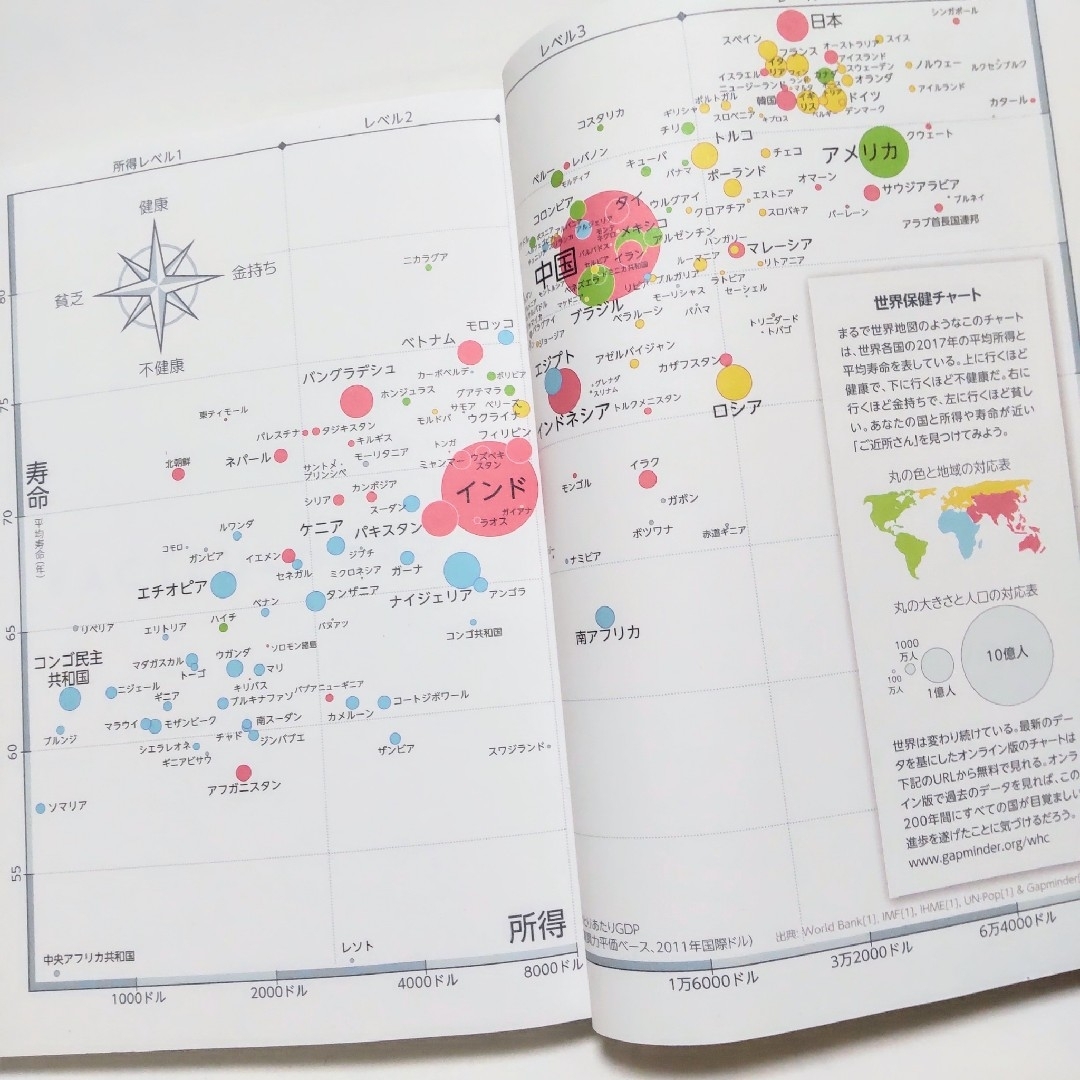 所得レベル1
レベル2
レベル3
健康
金持ち
貧乏
不健康
寿命
平均寿命(年)
75
70
65
60
55
ニカラグア
モロッコ
ベトナム
バングラデシュ
カーボベルデ
ボリビア
ホンジュラス
グアテマラ
東ティモール
サモア
ベリーズ
モルドバ
ウクライナ
パレスチナ
タジキスタン
フィリピン
キルギス
トンガ
北朝鮮
ネパール
モーリタニア
サントメ・
プリンシペ
ミャンマー
ウズベキ
スタン
インド
カンボジア
シリア
スーダン
ガイアナ
ラオス
ルワンダ
ケニア
パキスタン
コモロ
ガンビア
イエメン
ジブチ
セネガル
ミクロネシア
ガーナ
エチオピア
タンザニア
ナイジェリア
アンゴラ
ベナン
リベリア
エリトリア
ハイチ
バヌアツ
コンゴ共和国
ソロモン諸島
コンゴ民主
共和国
マダガスカル
ウガンダ
トーゴ
マリ
キリバス
ニジェール
ギニア
ブルキナファソ
パプアニューギニア
コートジボワール
マラウイ
モザンビーク
南スーダン
カメルーン
ブルンジ
チャド
ジンバブエ
シエラレオネ
ギニアビサウ
ザンビア
スワジランド
アフガニスタン
ソマリア
中央アフリカ共和国
レソト
所得
1000ドル
2000ドル
4000ドル
8000ドル
日本
シンガポール
スペイン
フランス
オーストラリア
スイス
アイスランド
スウェーデン
ノルウェー
ルクセンブルク
イスラエル
ニュージーランド
オランダ
アイルランド
ポルトガル
韓国
イギ
リス
ドイツ
カタール
コスタリカ
ギリシャ
スロベニア
キプロス
デンマーク
チリ
トルコ
チェコ
アメリカ
クウェート
ペルー
レバノン
モルディブ
キューバ
パナマ
ポーランド
オマーン
サウジアラビア
コロンビア
タイ
ウルグアイ
エストニア
ブルネイ
クロアチア
スロバキア
バーレーン
アラブ首長国連邦
メキシコ
アルゼンチン
ハンガリー
マレーシア
中国
イラン
ルーマニア
リトアニア
ドミニカ共和国
ベネズエラ
リビア
ブルガリア
ラトビア
モーリシャス
セーシェル
ブラジル
ベラルーシ
バハマ
トリニダード
・トバゴ
エジプト
アゼルバイジャン
カザフスタン
グレナダ
スリナム
インドネシア
トルクメニスタン
ロシア
モンゴル
イラク
ガボン
ボツワナ
赤道ギニア
ナミビア
南アフリカ
世界保健チャート
まるで世界地図のようなこのチャート
は、世界各国の2017年の平均所得と
平均寿命を表している。上に行くほど
健康で、下に行くほど不健康だ。右に
行くほど金持ちで、左に行くほど貧し
い。あなたの国と所得や寿命が近い
「ご近所さん」を見つけてみよう。
丸の色と地域の対応表
丸の大きさと人口の対応表
100
万人
1000
万人
1億人
10億人
世界は変わり続けている。最新のデー
タを基にしたオンライン版のチャートは
下記のURLから無料で見れる。オンラ
イン版で過去のデータを見れば、この
200年間にすべての国が目覚ましい
進歩を遂げたことに気づけるだろう。
www.gapminder.org/whc
とりあたりGDP
買力平価ベース、2011年国際ドル)
出典: World Bank[1], IMF[1], IHME[1], UN-Pop[1] & Gapminder[
1万6000ドル
3万2000ドル
6万4000ドル